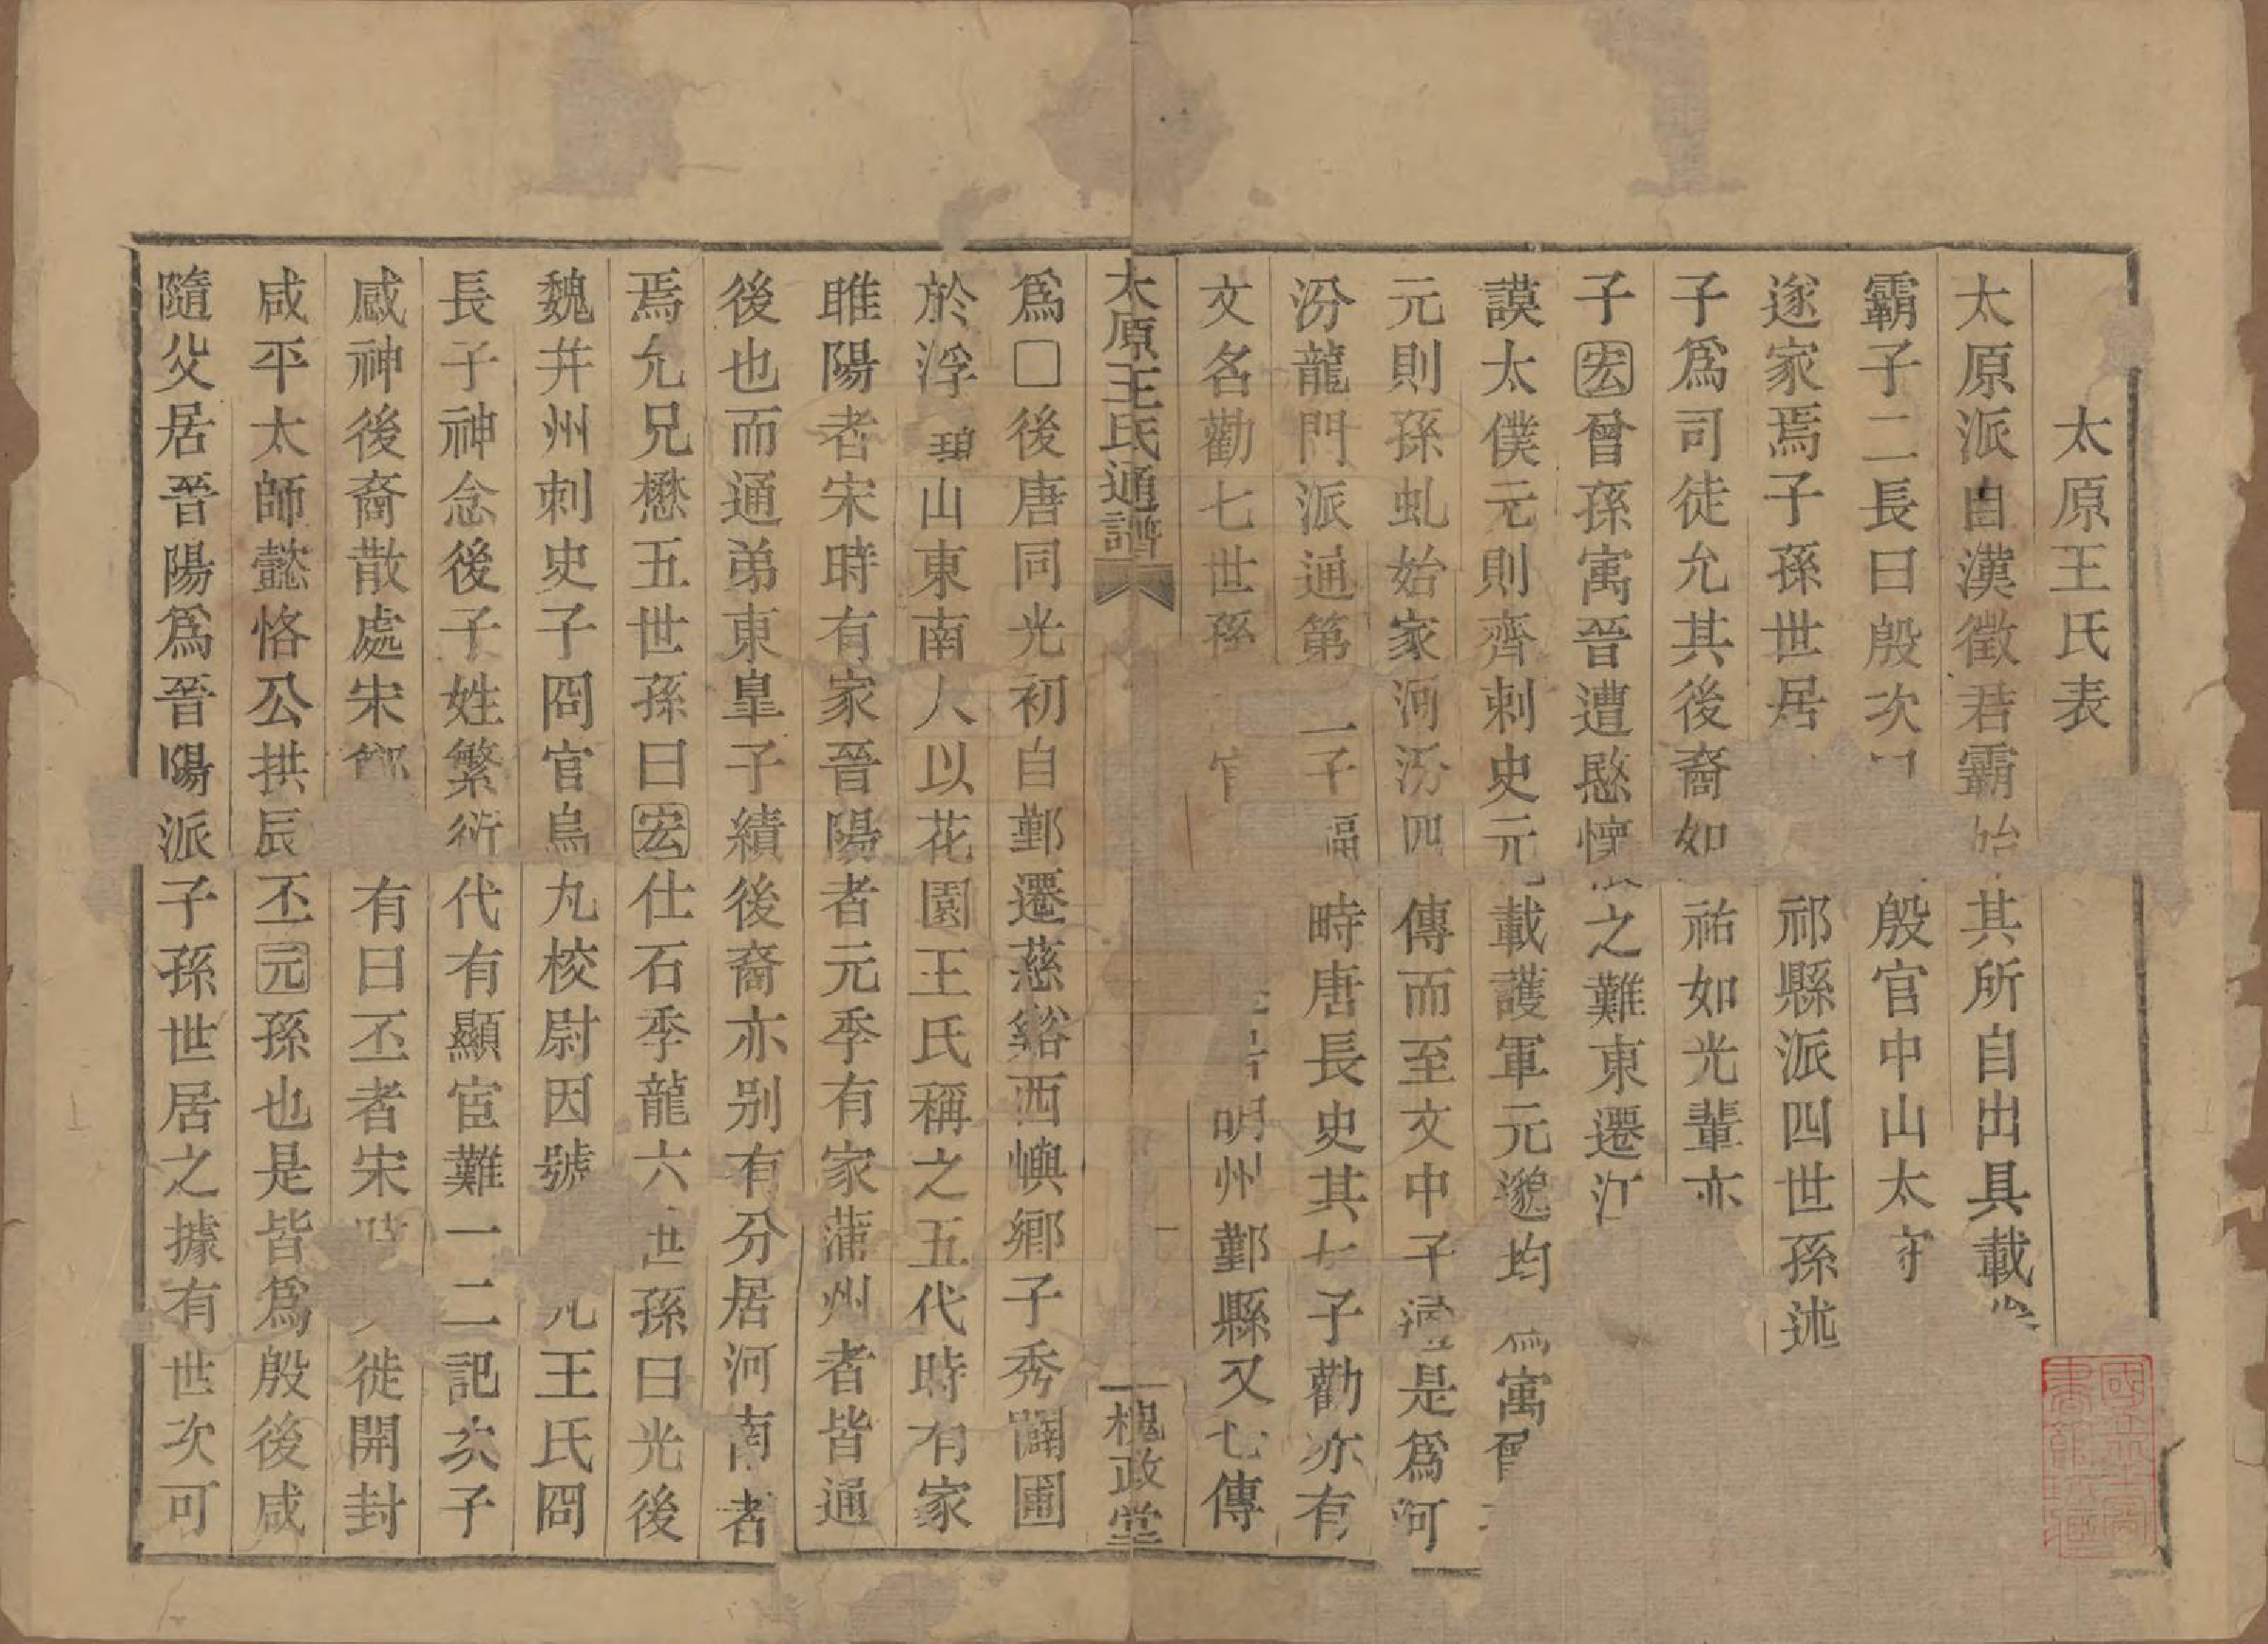 太原王氏表
太原派自漢徵君霸始其所自出具載
霸子二長曰殷次殷官中山太守
遂家焉子孫世居祁縣派四世孫述
子爲司徒允其後裔如祐如光輩亦
子宏曾孫寓晉遭愍懷之難東遷江
謨太僕元則齊刺史元載護軍元邈均爲寓
元則孫虬始家河汾四傳而至文中子通是爲河
汾龍門派通第二子福畤唐長史其七子勸亦有
文名勸七世孫官明州鄞縣又七傳
太原王氏通譜
一
槐政堂
爲□後唐同光初自鄞遷慈谿西嶼鄉子秀闢圃
於浮碧山東南人以花園王氏稱之五代時有家
睢陽者宋時有家晉陽者元季有家蒲州者皆通
後也而通弟東皐子績後裔亦別有分居河南者
焉允兄懋五世孫曰宏仕石季龍六世孫曰光後
魏并州刺史子冏官烏丸校尉因號王氏冏
長子神念後子姓繁衍代有顯宦難一二記次子
感神後裔散處宋有曰丕者宋徙開封
咸平太師懿恪公拱辰丕元孫也是皆爲殷後咸
隨父居晉陽爲晉陽派子孫世居之據有世次可